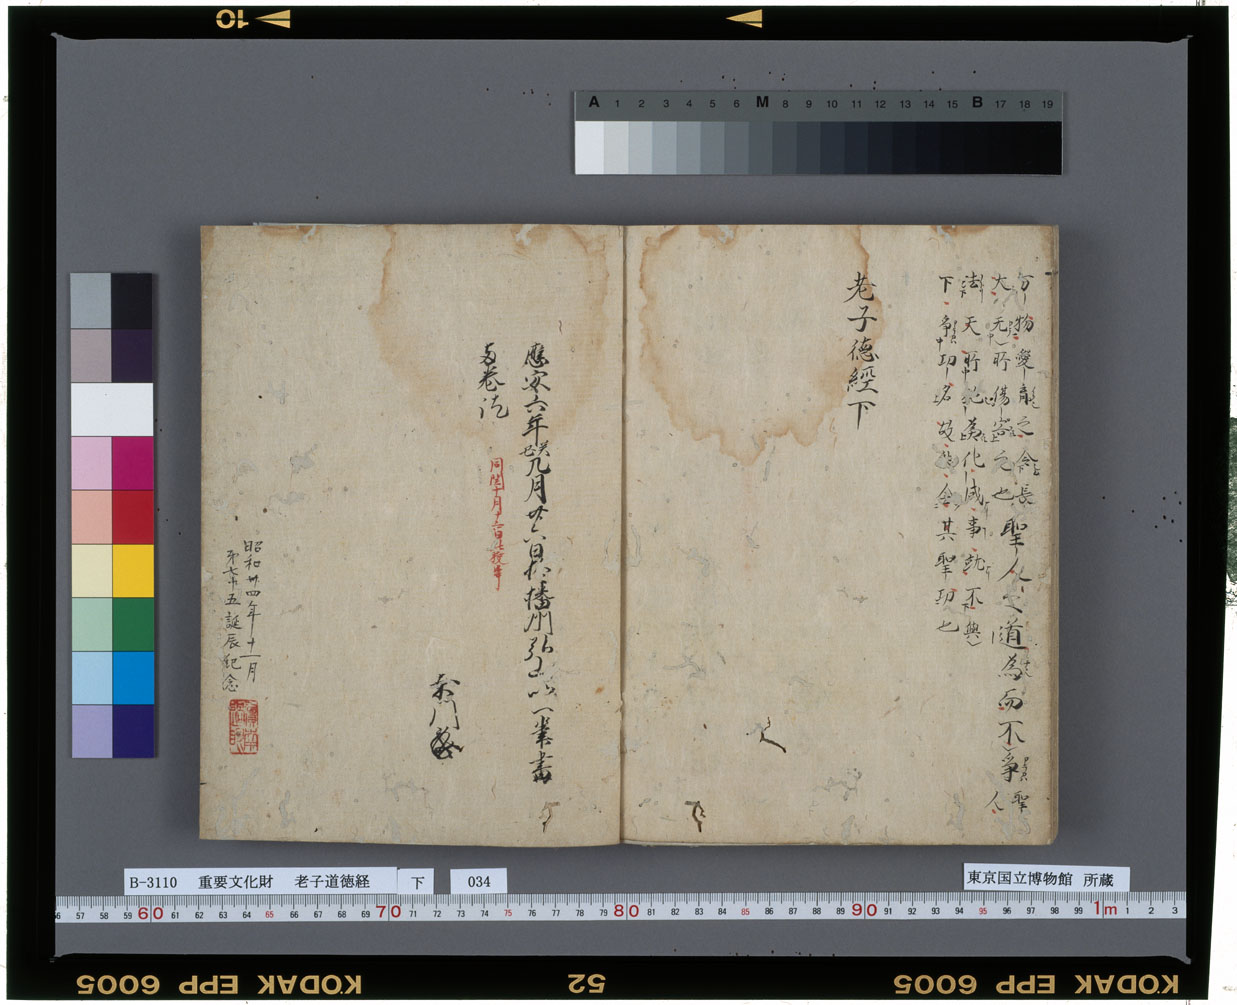 10
A 1 2 3 4 5 6 M 8 9 10 11 12 13 14 15 B 17 18 19
万物愛育之令長聖人之道為而不争聖人
大无所傷害之也
法天所施為化成事就不与
下争功名故能全其聖功也
老子德經下
應安六年癸丑九月廿六日於播州弘山以一筆書
両巻訖
同閏十月十六日
昭和廿四年十一月
第七十五誕辰紀念
B-3110 重要文化財 老子道徳経 下 034
東京国立博物館 所蔵
56 57 58 59 60 61 62 63 64 65 66 67 68 69 70 71 72 73 74 75 76 77 78 79 80 81 82 83 84 85 86 87 88 89 90 91 92 93 94 95 96 97 98 99 1m 1 2 3
KODAK EPP 6005
52
KODAK EPP 6005